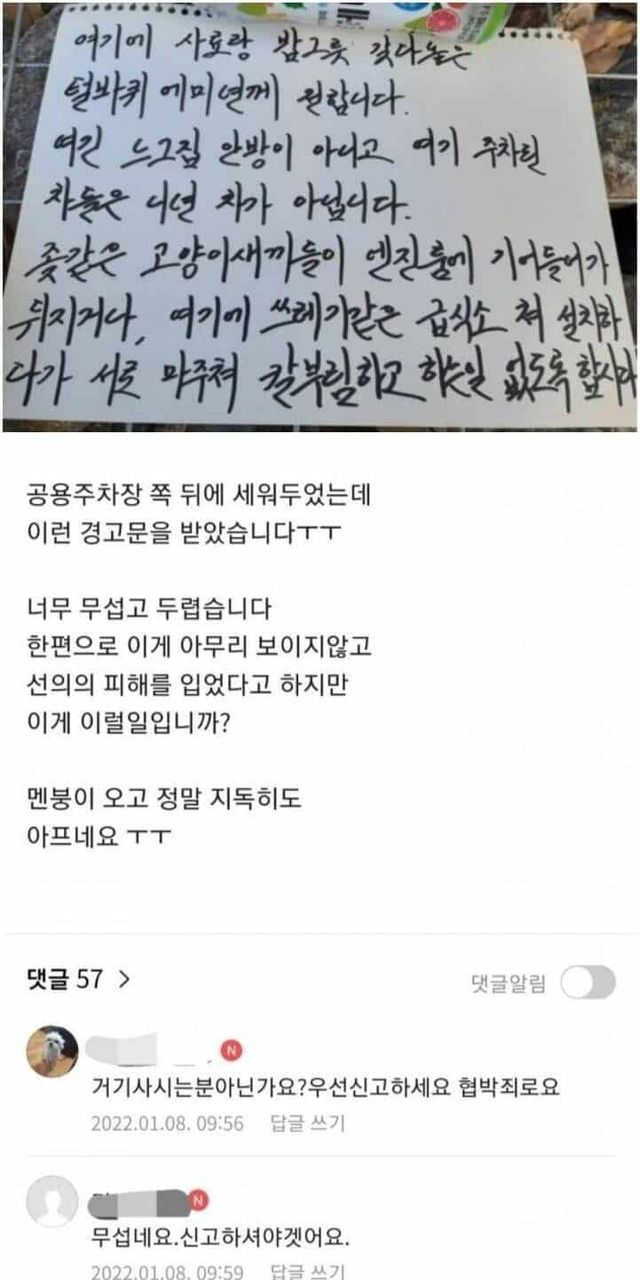 여기에 사료랑 밥그릇 갖다놓은
털바퀴 에미년께 원합니다.
여긴 느그집 안방이 아니고 여기 주차된
차들은 니년 차가 아닙니다.
좆같은 고양이새끼들이 엔진룸에 기어들어가
뒤지거나, 여기에 쓰레기같은 급식소 쳐 설치하
다가 서로 마주쳐 칼부림하고 하는일 없도록 합시다
공용주차장 쪽 뒤에 세워두었는데
이런 경고문을 받았습니다ㅜㅜ
너무 무섭고 두렵습니다
한편으로 이게 아무리 보이지않고
선의의 피해를 입었다고 하지만
이게 이럴일입니까?
멘붕이 오고 정말 지독히도
아프네요 ㅜㅜ
댓글 57 >
댓글알림
N
거기사시는분아닌가요?우선신고하세요 협박죄로요
2022.01.08. 09:56 답글 쓰기
N
무섭네요.신고하셔야겟어요.
2022.01.08. 09:59 답글 쓰기